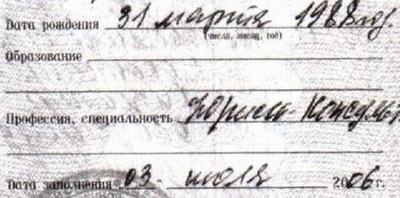 Дата рождения 31 марта 1988 год.
(число, месяц, год)
Образование
Профессия, специальность Юрист-Консульт
Дата заполнения 03 - июля 2006 г.